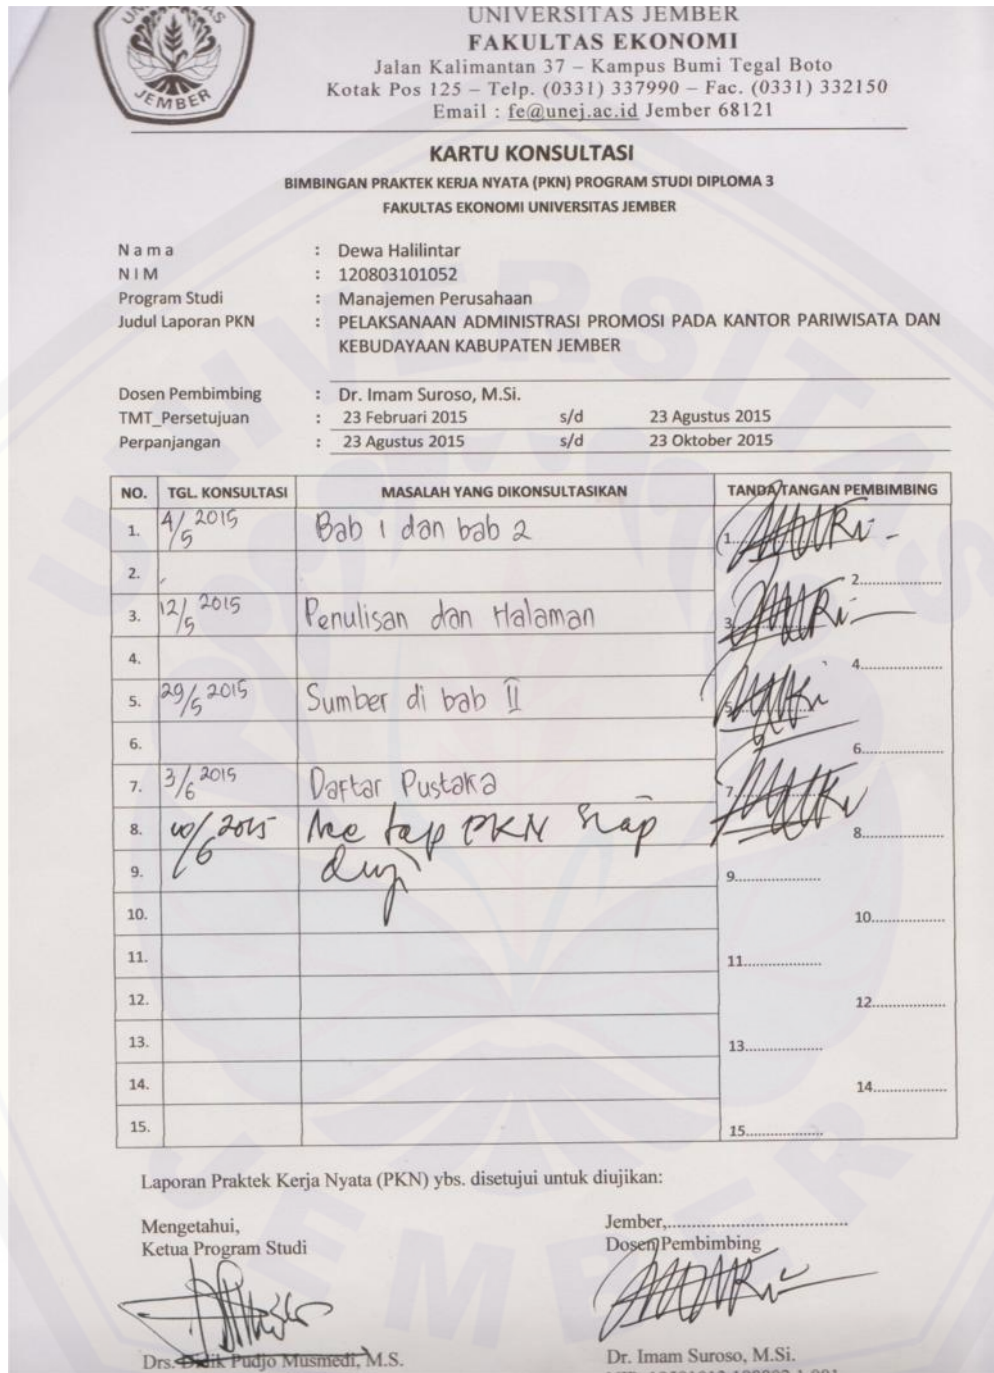 JEMBER
UNIVERSITAS JEMBER
FAKULTAS EKONOMI
Jalan Kalimantan 37 – Kampus Bumi Tegal Boto
Kotak Pos 125 – Telp. (0331) 337990 – Fac. (0331) 332150
Email : fe@unej.ac.id Jember 68121
KARTU KONSULTASI
BIMBINGAN PRAKTEK KERJA NYATA (PKN) PROGRAM STUDI DIPLOMA 3
FAKULTAS EKONOMI UNIVERSITAS JEMBER
N a m a : Dewa Halilintar
N I M : 120803101052
Program Studi : Manajemen Perusahaan
Judul Laporan PKN : PELAKSANAAN ADMINISTRASI PROMOSI PADA KANTOR PARIWISATA DAN
KEBUDAYAAN KABUPATEN JEMBER
Dosen Pembimbing : Dr. Imam Suroso, M.Si.
TMT_Persetujuan : 23 Februari 2015 s/d 23 Agustus 2015
Perpanjangan : 23 Agustus 2015 s/d 23 Oktober 2015
NO. TGL. KONSULTASI MASALAH YANG DIKONSULTASIKAN TANDA TANGAN PEMBIMBING
1. 4/5 2015 Bab 1 dan bab 2 1.
2. 2....................
3. 12/5 2015 Penulisan dan Halaman 3.
4. 4....................
5. 29/5 2015 Sumber di bab II 5.
6. 6....................
7. 3/6 2015 Daftar Pustaka 7.
8. 10/6 2015 Acc lap PKN siap 8....................
9. diuji 9....................
10. 10....................
11. 11....................
12. 12....................
13. 13....................
14. 14....................
15. 15....................
Laporan Praktek Kerja Nyata (PKN) ybs. disetujui untuk diujikan:
Mengetahui, Jember,....................................
Ketua Program Studi Dosen Pembimbing
Drs. Didik Pudjo Musmedi, M.S. Dr. Imam Suroso, M.Si.